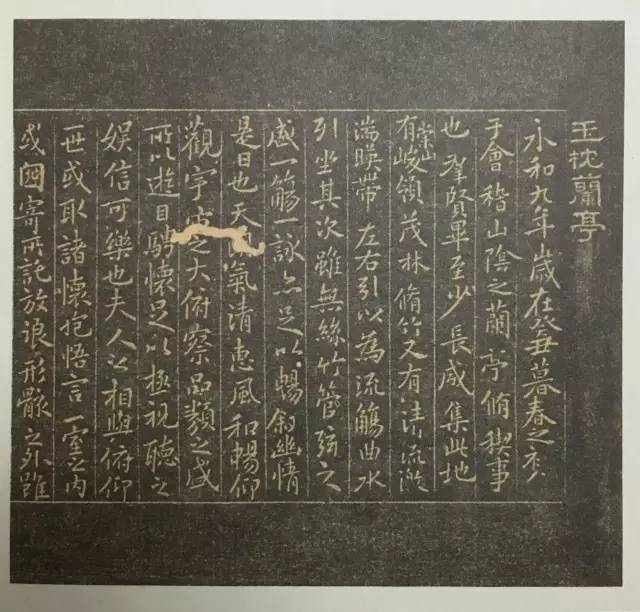 玉枕蘭亭
永和九年歲在癸丑暮春之初
于會稽山陰之蘭亭脩稧事
也羣賢畢至少長咸集此地
有崇山峻領茂林脩竹又有清流激
湍暎帶左右引以為流觴曲水
列坐其次雖無絲竹管弦之
盛一觴一詠亦足以暢敘幽情
是日也天氣清惠風和暢仰
觀宇宙之大俯察品類之盛
所以遊目騁懷足以極視聽之
娛信可樂也夫人之相與俯仰
一世或取諸懷抱悟言一室之內
或因寄所託放浪形骸之外雖